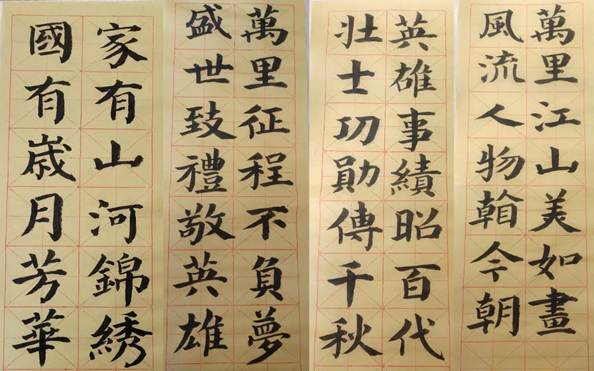 萬里江山美如畫
風流人物翰今朝
英雄事績昭百代
壯士功勛傳千秋
萬里征程不負夢
盛世致禮敬英雄
家有山河錦綉
國有嵗月芳華